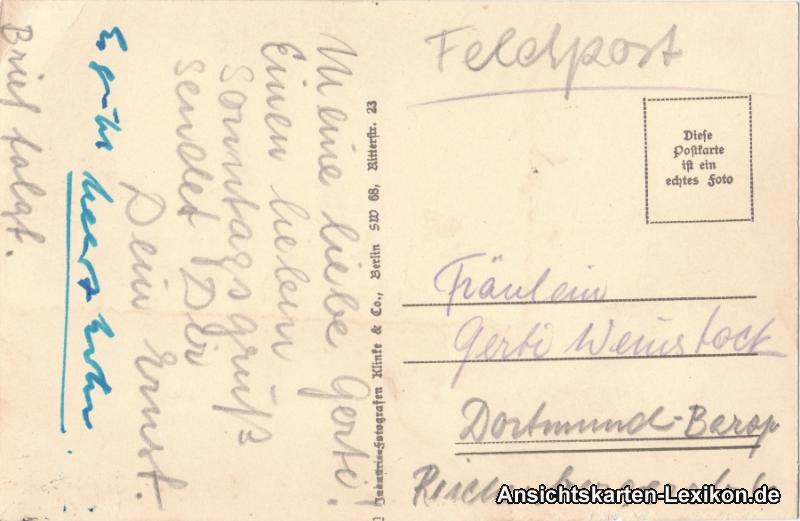 Feldpost
Diese
Postkarte
ist ein
echtes Foto
Fräulein
Gerti Weinstock
Dortmund-Barop
Meine liebe Gerti!
Einen lieben
Sonntagsgruß
sendet Dir
Dein Ernst.
Brief folgt.
Industrie-Fotografen Klinke & Co., Berlin SW 68, Ritterstr. 23
Ansichtskarten-Lexikon.de